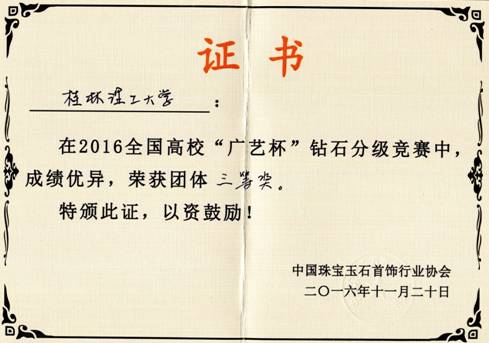 证书
桂林理工大学：
在2016全国高校“广艺杯”钻石分级竞赛中，
成绩优异，荣获团体三等奖。
特颁此证，以资鼓励！
中国珠宝玉石首饰行业协会
二〇一六年十一月二十日